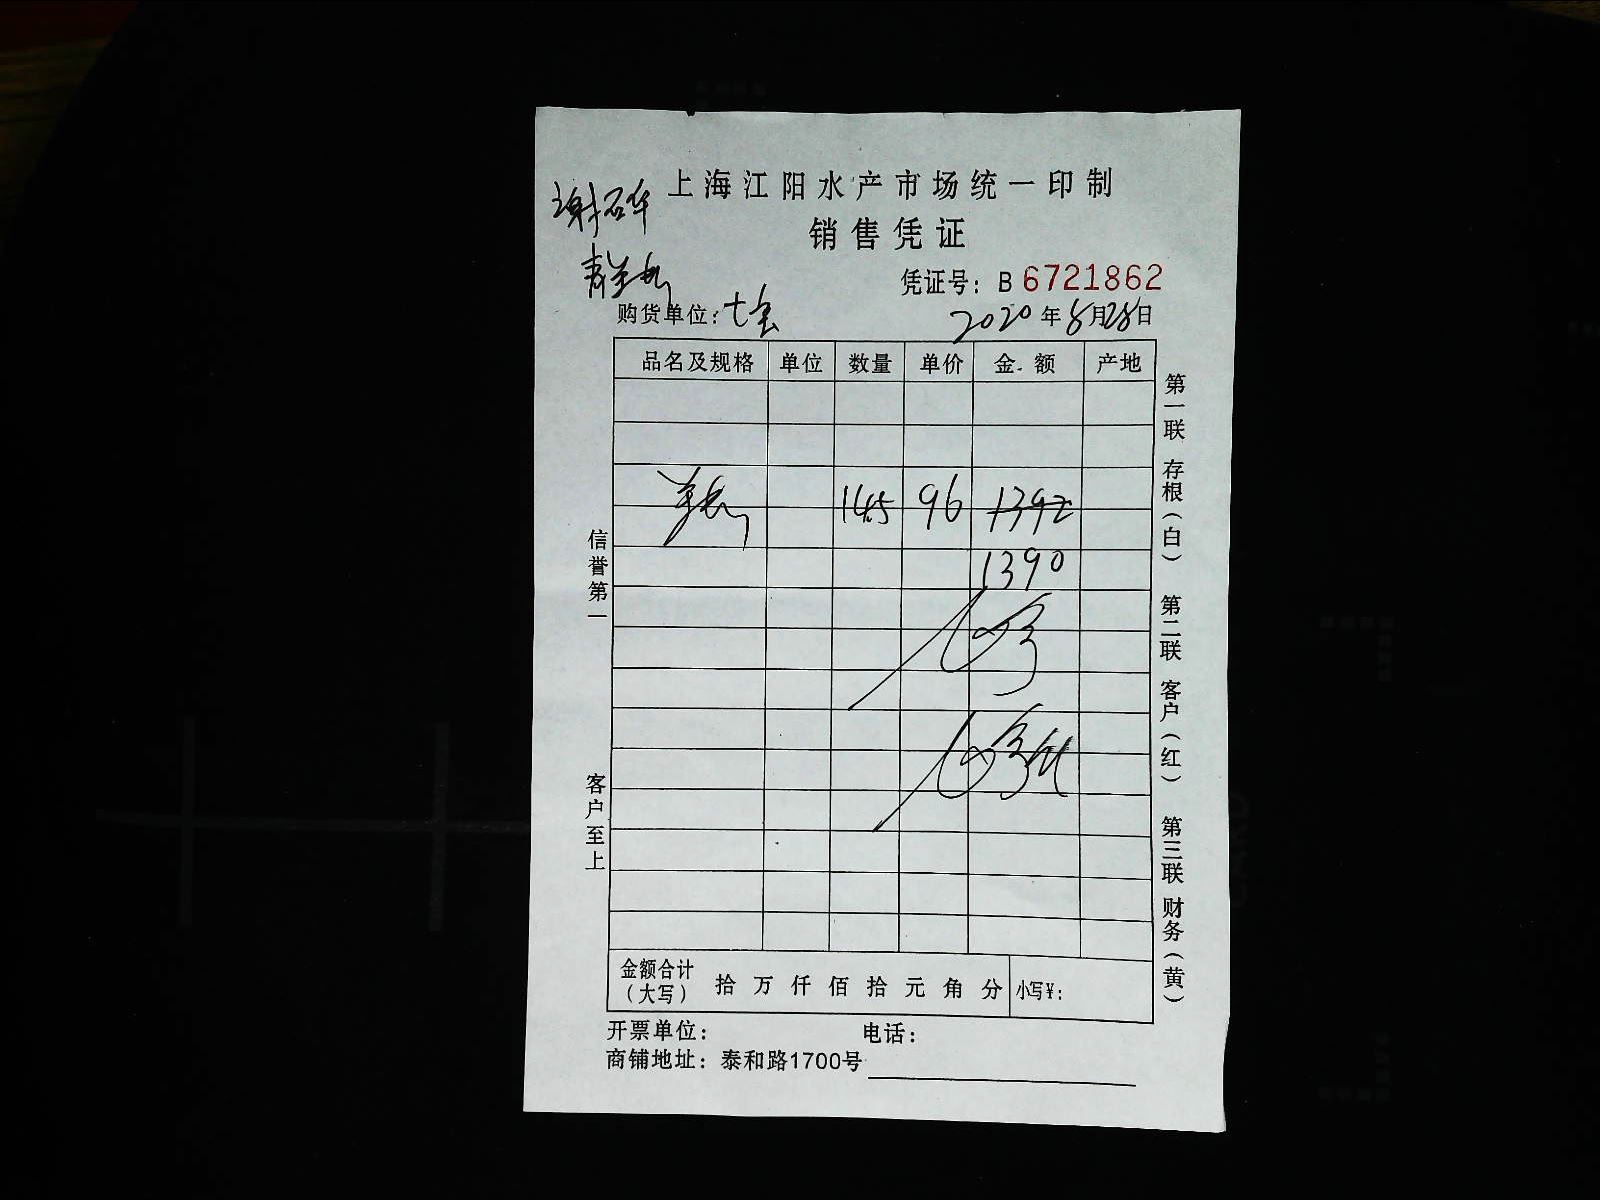 上海江阳水产市场统一印制
销售凭证
凭证号：B 6721862
购货单位：七宝
2020年8月28日
品名及规格 单位 数量 单价 金额 产地
14.5 96 1392
1390
信誉第一
客户至上
第一联 存根（白） 第二联 客户（红） 第三联 财务（黄）
金额合计（大写） 拾 万 仟 佰 拾 元 角 分 小写¥：
开票单位： 电话：
商铺地址：泰和路1700号